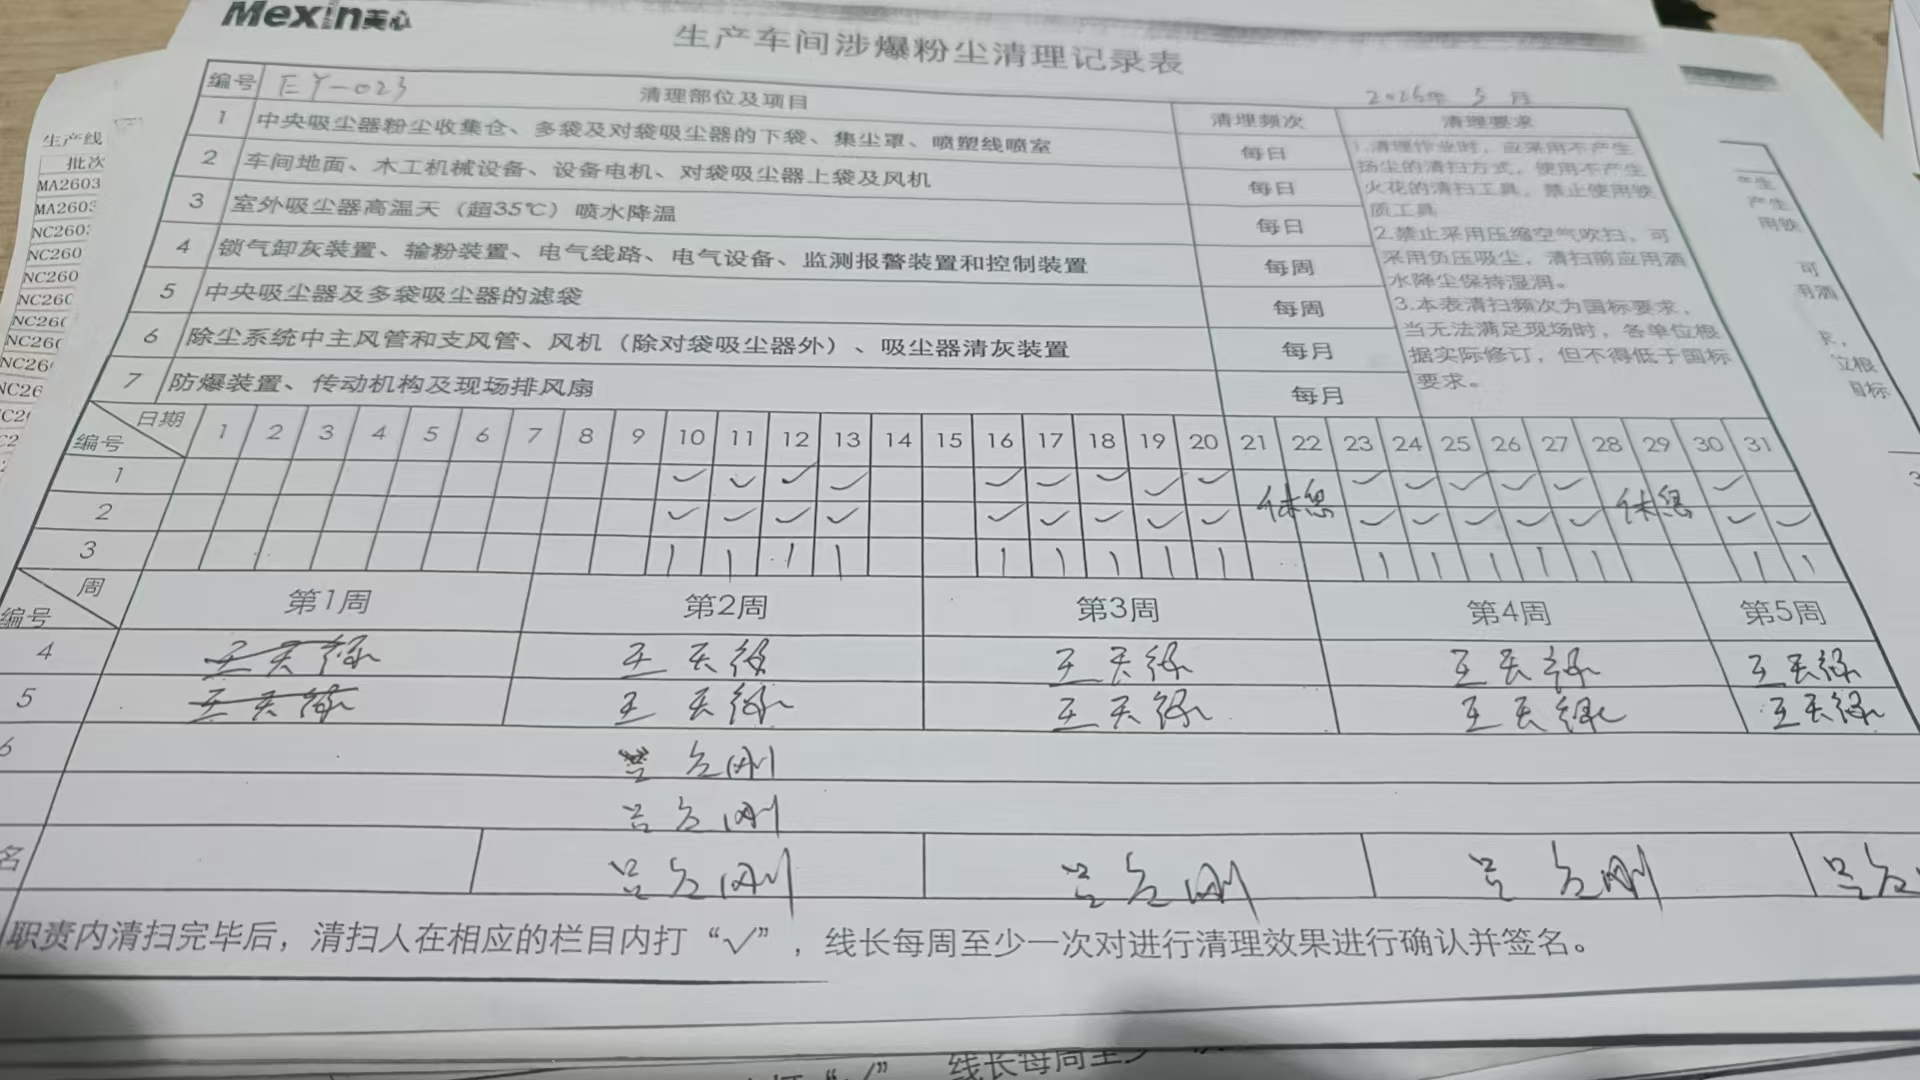 Mexin美心
生产车间涉爆粉尘清理记录表
编号 EY-023 清理部位及项目 清理频次 2026年3月 清理要求
1 中央吸尘器粉尘收集仓、多袋及对袋吸尘器的下袋、集尘罩、喷塑线喷室 每日
2 车间地面、木工机械设备、设备电机、对袋吸尘器上袋及风机 每日
3 室外吸尘器高温天（超35℃）喷水降温 每日
4 锁气卸灰装置、输粉装置、电气线路、电气设备、监测报警装置和控制装置 每周
5 中央吸尘器及多袋吸尘器的滤袋 每周
6 除尘系统中主风管和支风管、风机（除对袋吸尘器外）、吸尘器清灰装置 每月
7 防爆装置、传动机构及现场排风扇 每月
1.清理作业时，应采用不产生
扬尘的清扫方式，使用不产生
火花的清扫工具，禁止使用铁
质工具
2.禁止采用压缩空气吹扫，可
采用负压吸尘，清扫前应用洒
水降尘保持湿润。
3.本表清扫频次为国标要求，
当无法满足现场时，各单位根
据实际修订，但不得低于国标
要求。
日期 编号 1 2 3 4 5 6 7 8 9 10 11 12 13 14 15 16 17 18 19 20 21 22 23 24 25 26 27 28 29 30 31
1 ✓ ✓ ✓ ✓ ✓ ✓ ✓ ✓ ✓ ✓ ✓ ✓ ✓ ✓ ✓
休息 休息
2 ✓ ✓ ✓ ✓ ✓ ✓ ✓ ✓ ✓ ✓ ✓ ✓ ✓ ✓ ✓ ✓
3 | | | | | | | | | | | | | | | |
周 编号 第1周 第2周 第3周 第4周 第5周
4
5
6
名
职责内清扫完毕后，清扫人在相应的栏目内打“√”，线长每周至少一次对进行清理效果进行确认并签名。
生产线
批次
MA2603
MA2603
NC2603
NC260
NC260
NC260
NC260
NC260
NC26
产生
产生
用铁
可
用洒
求，
立根
国标
线长每周至少